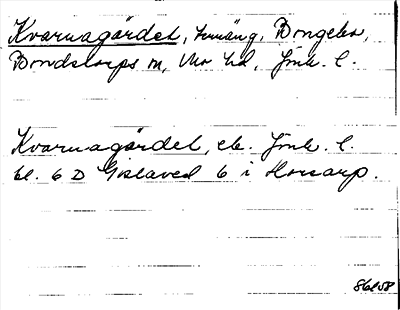 Kvarnagärdet, tomäng, Bongebo,
Bondstorps sn, Mo hd, Jönk. l.
Kvarnagärdet, ek. Jönk. l.
bl. 6 D Gislaved 6 i Horsarp.